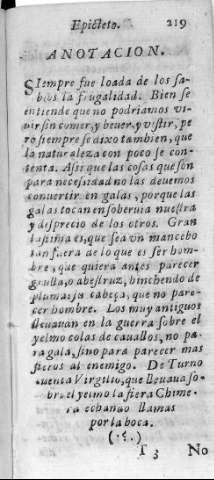 Epicteto. 219
ANOTACION.
SIempre fue loada de los sa-
bios la frugalidad. Bien se
entiende que no podriamos vi-
vir sin comer, y bever, y vestir, pe
ro siempre se dixo tambien, que
la naturaleza con poco se con-
tenta. Asi que las cosas que son
para necesidad no las devemos
convertir en galas, porque las
galas tocan en sobervia nuestra
y desprecio de los otros. Gran
lastima es, que sea un mancebo
tan fuera de lo que es ser hom-
bre, que quiera antes parecer
grulla, o abestruz, hinchendo de
plumas la cabeça, que no pare-
cer hombre. Los muy antiguos
llevavan en la guerra sobre el
yelmo colas de cavallos, no pa-
ra gala, sino para parecer mas
fieros al enemigo. De Turno
cuenta Virgilio, que llevava so-
bre el yelmo la fiera Chime-
ra echando llamas
por la boca.
T 3 No